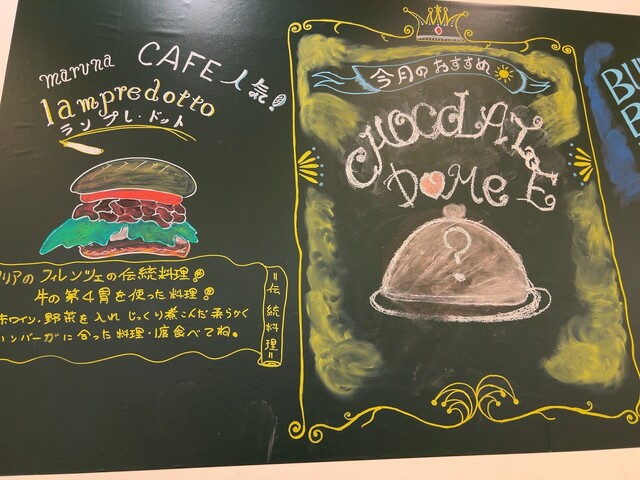 maruna CAFE 人気!
lampredotto
ランプレ・ドット
リアのフィレンツェの伝統料理!
牛の第4胃を使った料理!
赤ワイン・野菜を入れ じっくり煮こんだ柔らかく
ハンバーガに合った料理・1度食べてね。
=伝統料理=
今月のおすすめ
CHOCOLATE
DOME
?
BU
B